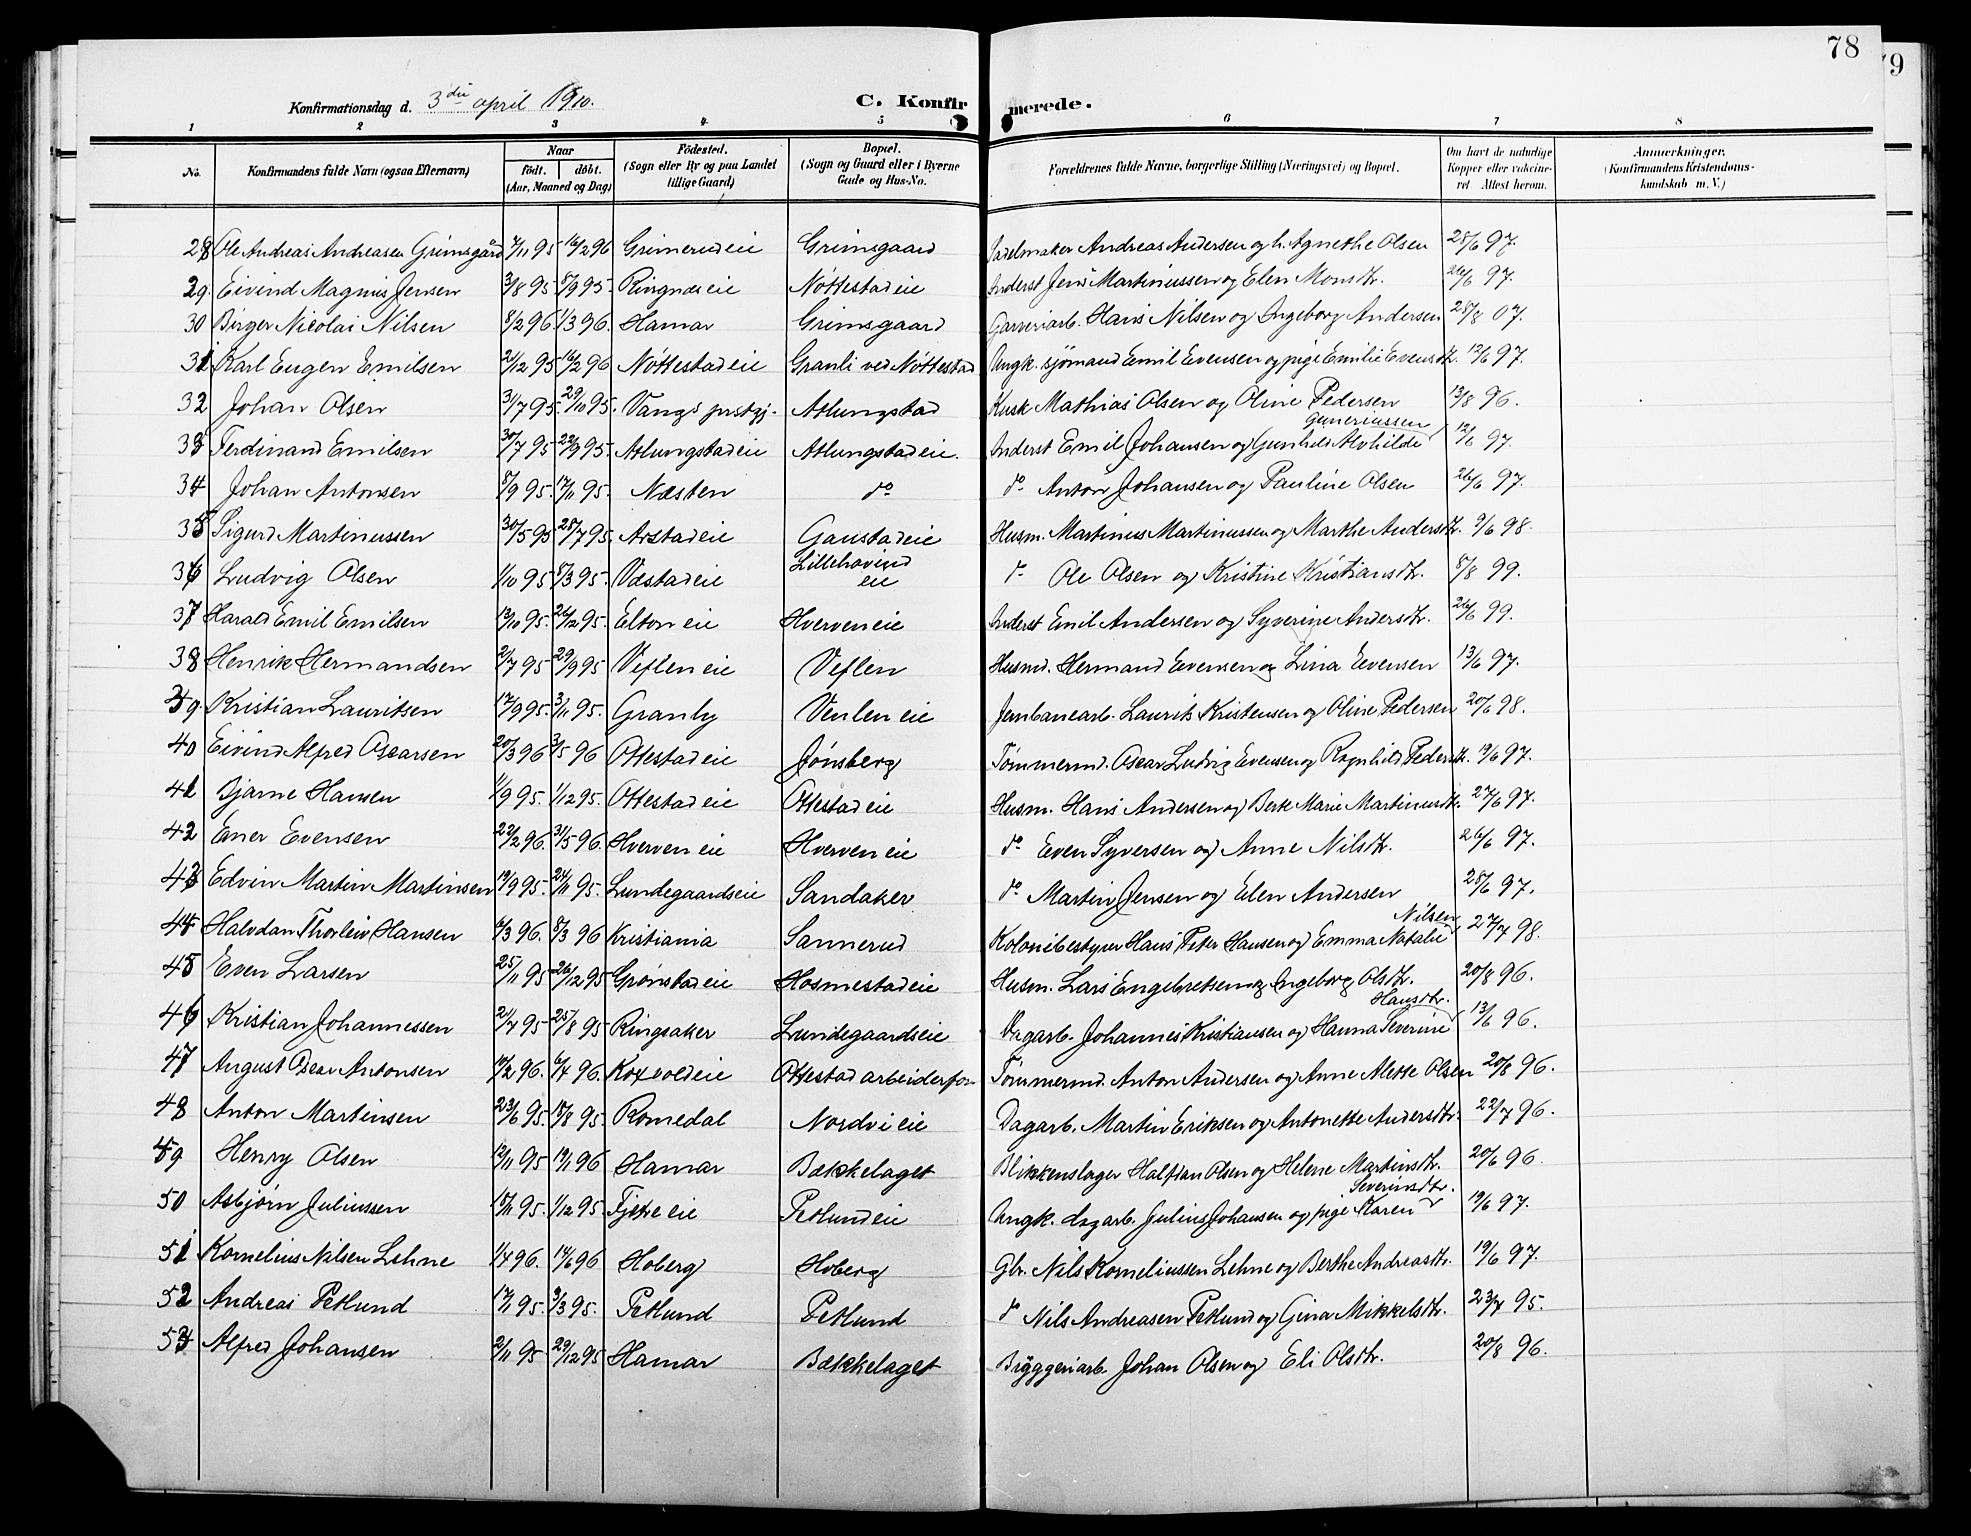 78
79
Konfirmationsdag d. 3die april 1910.
C. Konfirmerede.
1 2 3 4 5 6 7 8
No. | Konfirmandens fulde Navn (ogsaa Efternavn) | Naar født. døbt. (Aar, Maaned og Dag) | Fødested. (Sogn eller By og paa Landet tillige Gaard) | Bopæl. (Sogn og Gaard eller i Byerne Gade og Hus-No. | Forældrenes fulde Navne, borgerlige Stilling (Næringsvei) og Bopæl. | Om havt de naturlige Kopper eller vakcineret. Attest herom. | Anmerkninger. (Konfirmandens Kristendomskundskab m. V.)
28 Ole Andreas Andreasen Grimsgård 7/11 95 16/2 96 Grimerudeie Grimsgaard Sadelmaker Andreas Andersen og h. Agnethe Olsen 28/6 97.
29. Eivind Magnus Jensen 3/8 95 8/9 95. Ringnæseie Nøttestadeie Inderst Jens Martinussen og Elen Monsdtr. 26/6 97.
30 Birger Nicolai Nilsen 8/2 96 1/3 96. Hamar Grimsgaard Garveriarb. Hans Nilsen og Ingeborg Andersen 28/8 07.
31 Karl Eugen Emilsen 21/12 95 16/2 96 Nøttestadeie Granli ved Nøttestad Ungk. sjømand Emil Evensen og pige Emilie Evensdtr. 12/6 97.
32 Johan Olsen 31/7 95. 20/10 95. Vangs prstgj. Atlungstad Kusk Mathias Olsen og Oline Pedersen 13/8 96.
33 Ferdinand Emilsen 30/7 95 22/9 95. Atlungstadeie Atlungstadeie. Inderst Emil Johansen og Gunhild Alvhilde Guneriussen 12/6 97.
34 Johan Antonsen 8/9 95. 17/11 95. Næsten do do Anton Johansen og Pauline Olsen 26/6 97.
35 Sigurd Martinussen 30/5 95 28/7 95. Arstadeie Gaustadeie Husm. Martinus Martinussen og Marthe Andersdtr. 9/6 98.
36 Ludvig Olsen 1/10 95 8/3 95. Vestadeie Lillehovind eie do Ole Olsen og Kristine Kristiansdtr. 8/8 99.
37 Harald Emil Emilsen 13/10 95. 26/12 95. Elton eie Hverven eie Inderst Emil Andersen og Syverine Andersdtr. 26/6 99.
38 Henrik Hermandsen 2/7 95 29/9 95 Veflen eie Veflen Husmd. Hermand Evensen og Lina Evensen 13/6 97.
39. Kristian Lauritsen 17/9 95. 3/11 95. Granby Venlen eie Jernbanearb. Laurits Kristensen og Oline Pedersen 20/6 98.
40 Eivind Alfred Oscarsen 20/3 96 3/5 96 Ottestadeie Jønsberg Tømmermd. Oscar Ludvig Evensen og Ragnhild Pedersdtr. 19/6 97.
41 Bjarne Hansen 1/9 95. 1/12 95. Ottestadeie Ottestadeie Husm. Hans Andersen og Berte Marie Martinusdtr. 27/6 97.
42 Einer Evensen 22/2 96. 31/5 96. Hverven eie Hverven eie do Even Syversen og Anne Nilsdtr. 26/6 97.
43 Edvin Martin Martinsen 19/9 95. 24/11 95. Lundegaardseie Sandaker do Martin Jensen og Elen Andersen 28/6 97.
44 Halvdan Thorleiv Hansen 6/3 96. 8/3 96 Kristiania Sannerud Kolonibestyrer Hans Peter Hansen og Emma Natalie Nilsen 27/7 98.
45 Even Larsen 25/11 95 26/12 95 Grønstadeie Hosmestadeie Husm. Lars Engebretsen og Ingeborg Olsdtr. 20/8 96.
46 Kristian Johannessen 21/7 95 25/8 95 Ringsaker Lundegaardseie Dagarb. Johannes Kristiansen og Hanna Severine Hansdtr. 13/6 96.
47 August Oscar Antonsen 10/2 96. 6/4 96. Koxvoldeie Ottestad arbeiderfor. Tømmermd. Anton Andersen og Anne Alette Olsen 20/8 96.
48 Anton Martinsen 23/6 95. 18/8 95. Romedal Nordvi eie Dagarb. Martin Eriksen og Antonette Andersdtr. 22/7 96.
49 Henry Olsen 12/11 95 19/1 96 Hamar Bækkelaget Blikkenslager Halfdan Olsen og Helene Martinsdtr. 20/6 96.
50 Asbjørn Juliussen 18/11 95. 1/12 95. Fjetre eie Petlundeie Ungk. dagarb. Julius Johansen og pige Karen Severinsdtr. 19/6 97.
51 Kornelius Nilsen Lehne 1/4 96. 14/6 96 Hoberg Hoberg Gbr. Nils Korneliussen Lehne og Berthe Andreasdtr. 19/6 97.
52 Andreas Petlund 17/1 95. 3/3 95. Petlund Petlund do Nils Andreasen Petlund og Gina Mikkelsdtr. 23/7 95.
53 Alfred Johansen 2/11 95 29/12 95 Hamar Bækkelaget Bryggeriarb. Johan Olsen og Eli Olsdtr. 20/8 96.